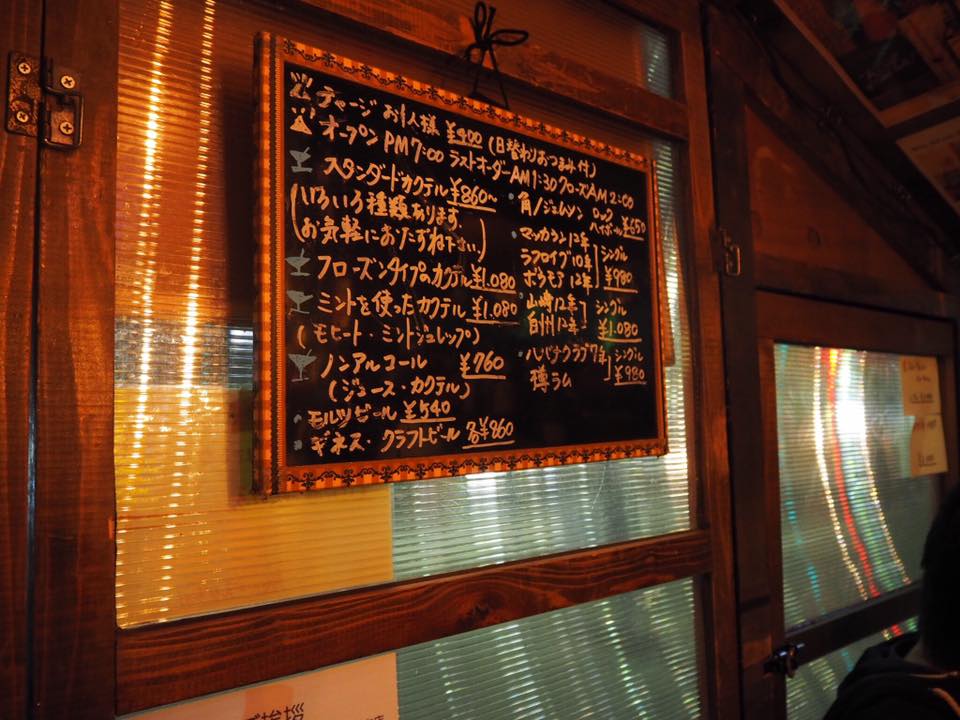 チャージ お1人様 ¥400 (日替わりおつまみ付)
オープン PM7:00 ラストオーダーAM1:30 クローズAM2:00
スタンダードカクテル ¥860〜
(いろいろ種類あります
お気軽におたずね下さい)
フローズンタイプのカクテル ¥1.080
ミントを使ったカクテル ¥1.080
(モヒート・ミントジュレップ)
ノンアルコール ¥760
(ジュース・カクテル)
・モルツビール ¥540
・ギネス・クラフトビール 各¥860
・角/ジェムソン ロック
ハイボール ¥650
・マッカラン12年
ラフロイグ10年 シングル
ボウモア12年 ¥980
・山崎12年 シングル
白州12年 ¥1.080
・ハバナクラブ7年 シングル
樽ラム ¥980
ご挨拶